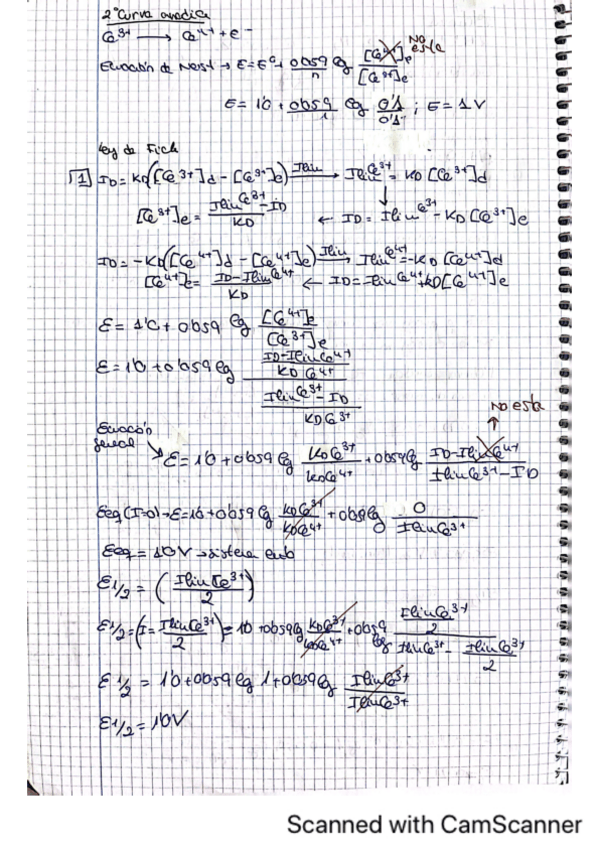 2º Curva anodica
Ce³⁺ → Ce⁴⁺ + e⁻
NO está
Ecuación de Nerst → E = Eº + 0'059/n lg [Ce⁴⁺]e / [Ce³⁺]e
E = 1'0 + 0'059/1 lg 0'1/0'1 ; E = 1 V
Ley de Fick
1 ID = KD([Ce³⁺]d - [Ce³⁺]e) Ilim→ Ilim Ce³⁺ = KD [Ce³⁺]d
[Ce³⁺]e = Ilim Ce³⁺ - ID / KD ← ID = Ilim Ce³⁺ - KD [Ce³⁺]e
ID = -KD([Ce⁴⁺]d - [Ce⁴⁺]e) Ilim→ Ilim Ce⁴⁺ = -KD [Ce⁴⁺]d
[Ce⁴⁺]e = ID - Ilim Ce⁴⁺ / KD ← ID = Ilim Ce⁴⁺ + KD [Ce⁴⁺]e
E = 1'0 + 0'059 lg [Ce⁴⁺]e / [Ce³⁺]e
E = 1'0 + 0'059 lg (ID - Ilim Ce⁴⁺ / KD Ce⁴⁺) / (Ilim Ce³⁺ - ID / KD Ce³⁺)
NO esta
Ecuación general
E = 1'0 + 0'059 lg KD Ce³⁺ / KD Ce⁴⁺ + 0'059 lg ID - Ilim Ce⁴⁺ / Ilim Ce³⁺ - ID
Eeq (I=0) → E = 1'0 + 0'059 lg KD Ce³⁺ / KD Ce⁴⁺ + 0'059 lg 0 / Ilim Ce³⁺
Eeq = 1'0 V →
E 1/2 = (Ilim Ce³⁺ / 2)
E 1/2 = (I = Ilim Ce³⁺ / 2) = 1'0 + 0'059 lg KD Ce³⁺ / KD Ce⁴⁺ + 0'059 lg (Ilim Ce³⁺ / 2) / (Ilim Ce³⁺ - Ilim Ce³⁺ / 2)
E 1/2 = 1'0 + 0'059 lg 1 + 0'059 lg Ilim Ce³⁺ / Ilim Ce³⁺
E 1/2 = 1'0 V
Scanned with CamScanner